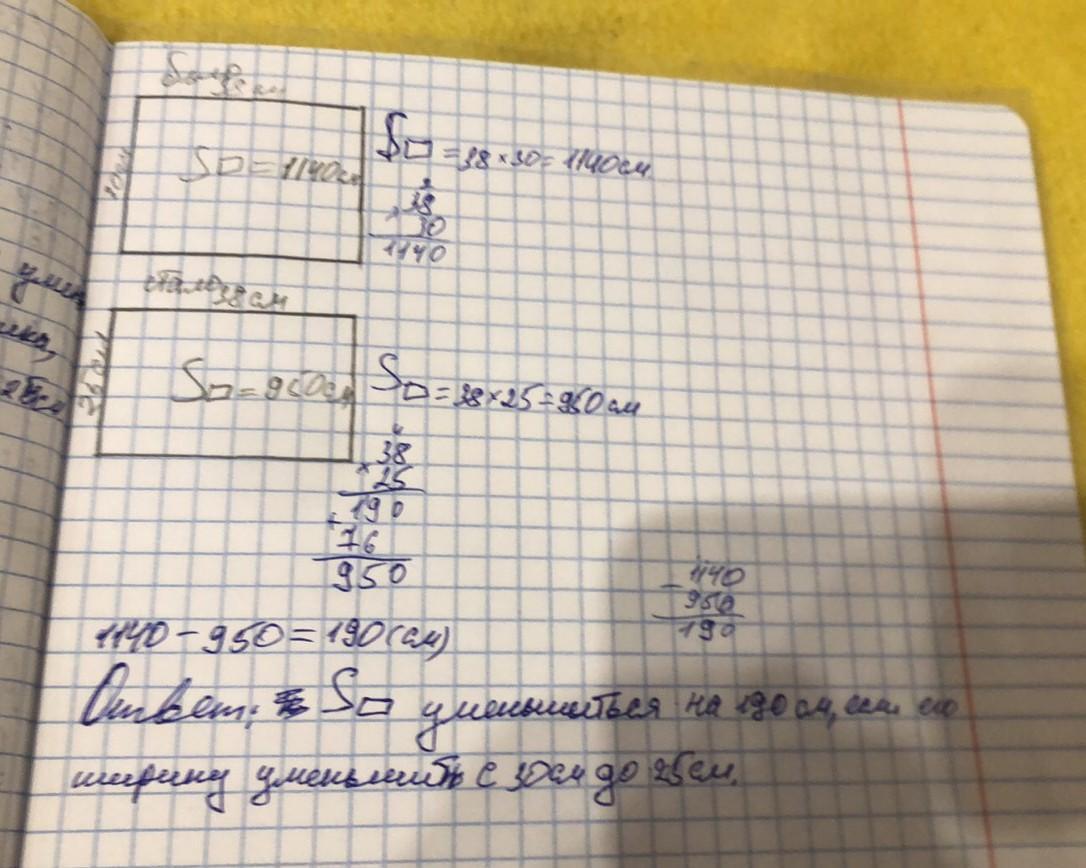 Было
38 см
30см
S▭ = 1140см
S▭ = 38 × 30 = 1140 см
2
38
× 30
1140
стало 38 см
25 см
S▭ = 950см
S▭ = 38 × 25 = 950 см
4
38
× 25
190
+
76
950
1140
- 950
190
1140 - 950 = 190 (см)
Ответ: S▭ уменьшиться на 190 см, если его
ширину уменьшить с 30 см до 25 см.
25см